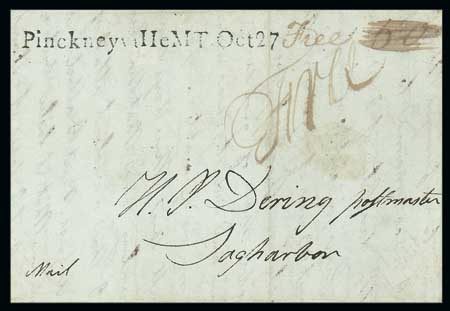 PinckneyvilleMT. Oct 27 Free
Free
H. P. Dering postmaster
Sagharbor
Mail